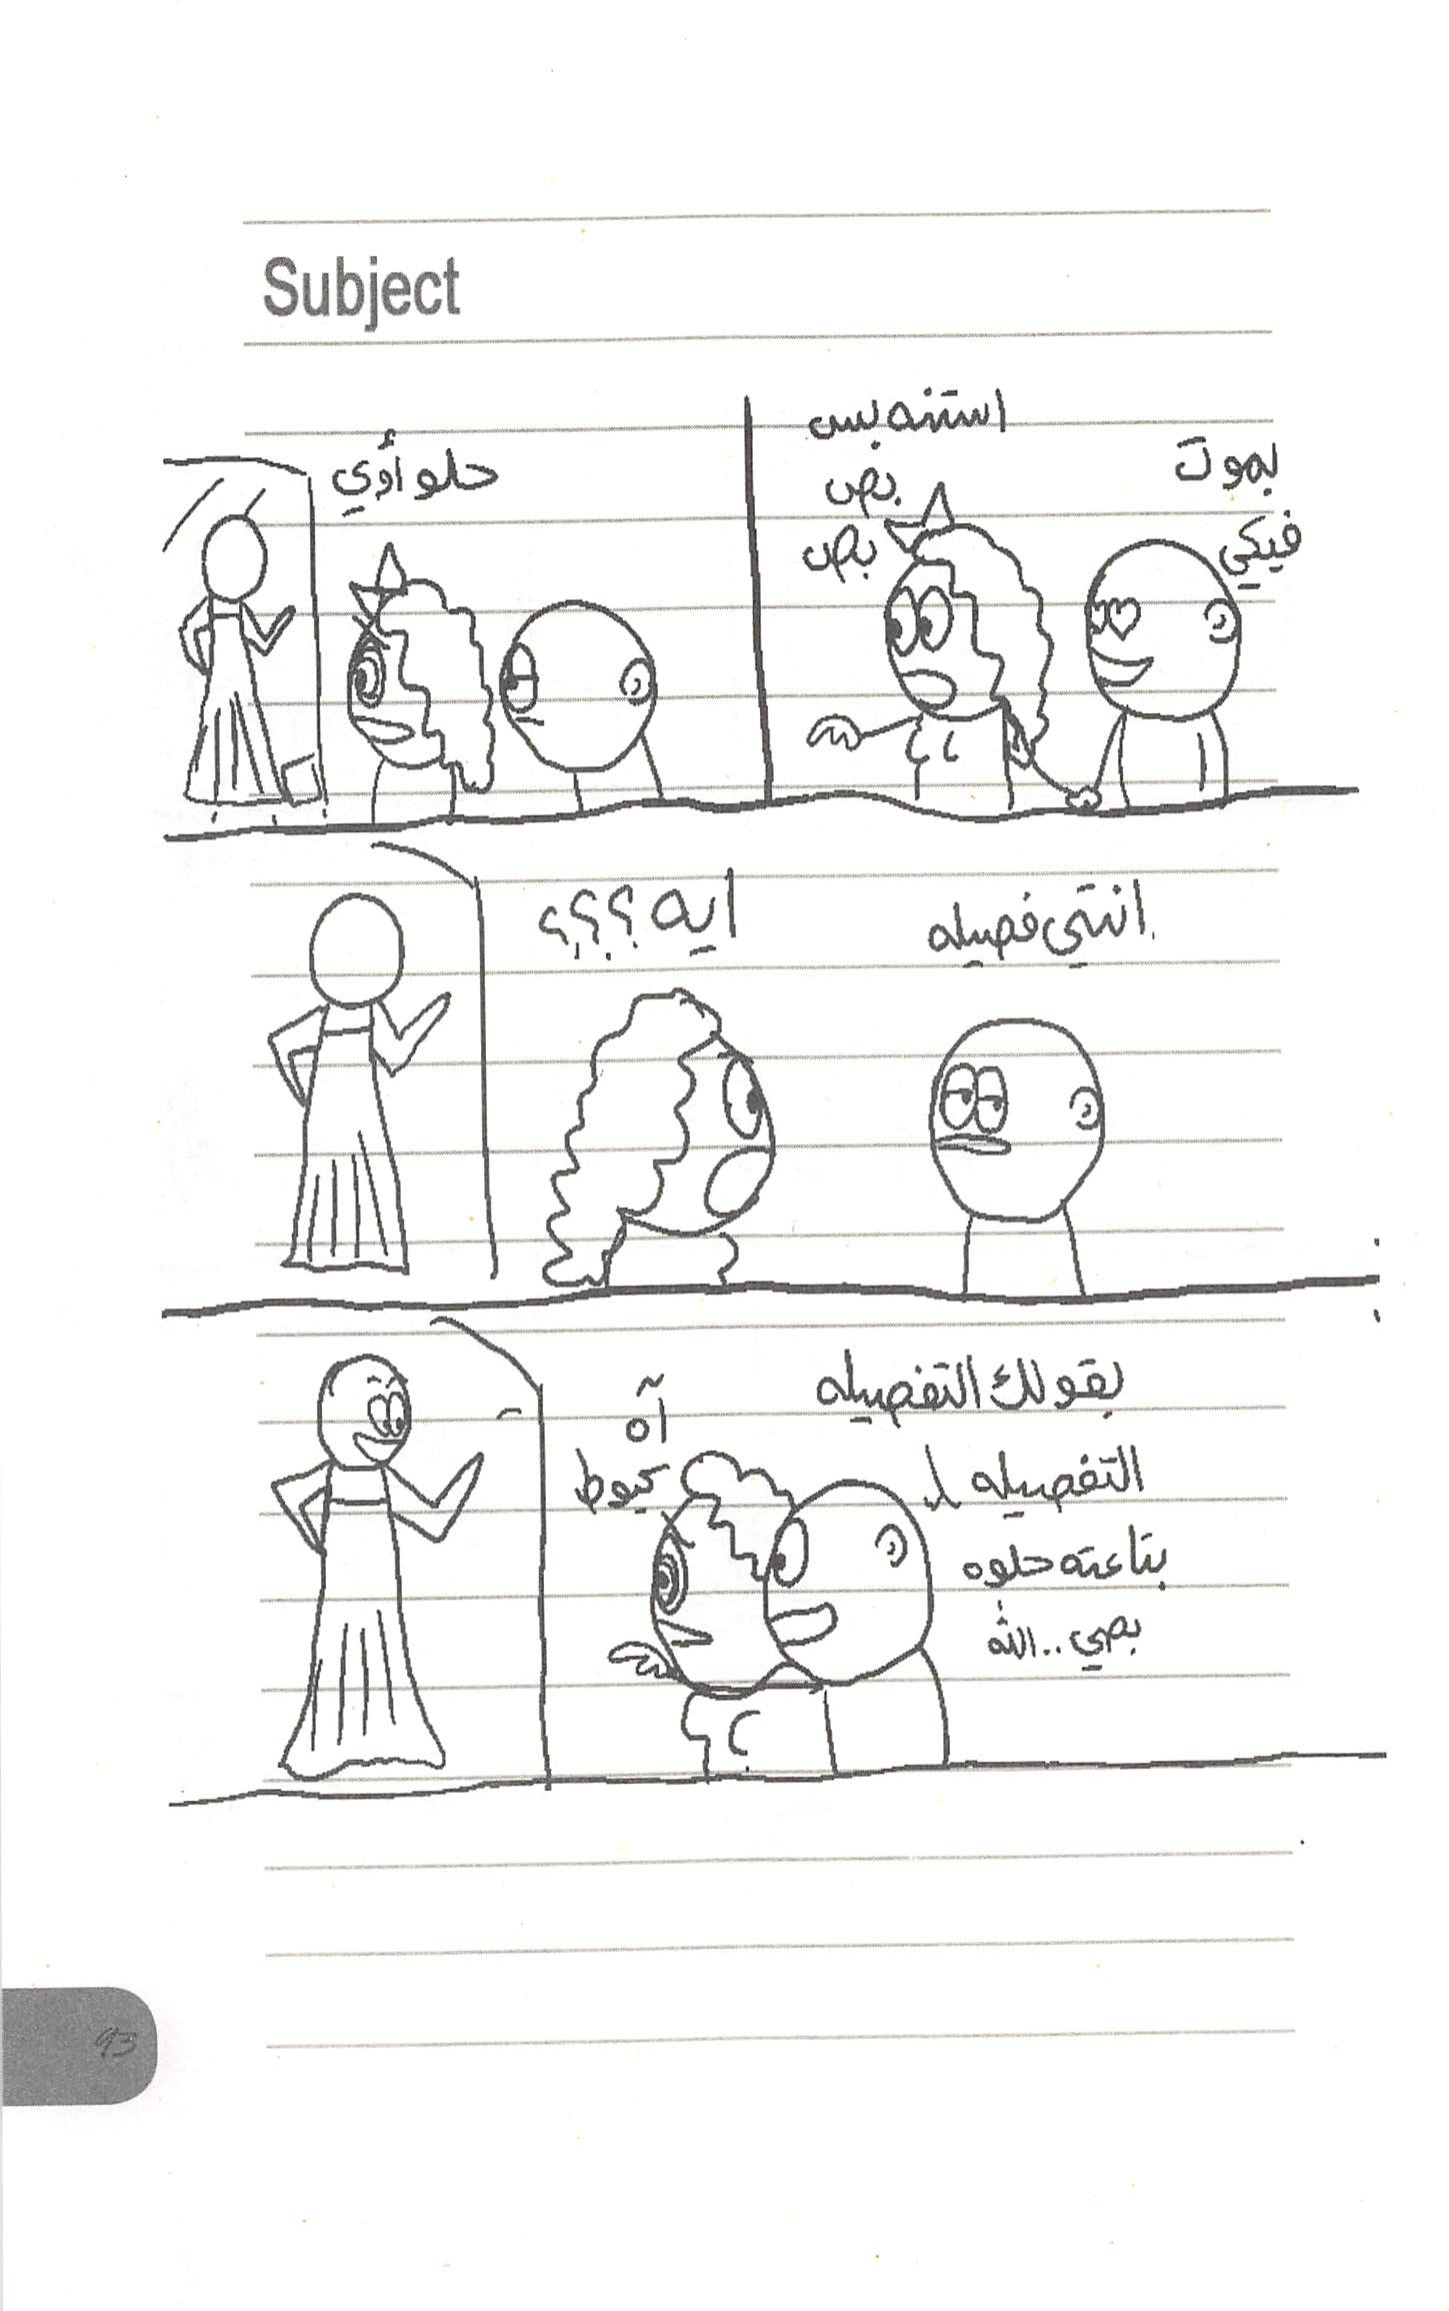 Subject
بموت
فيكي
استنه بس
بص
بص
حلو أوي
انتي فصيله
ايه؟؟؟؟
بقولك التفصيله
التفصيله
بتاعته حلوه
بصي.. الله
آه
كيوط
93